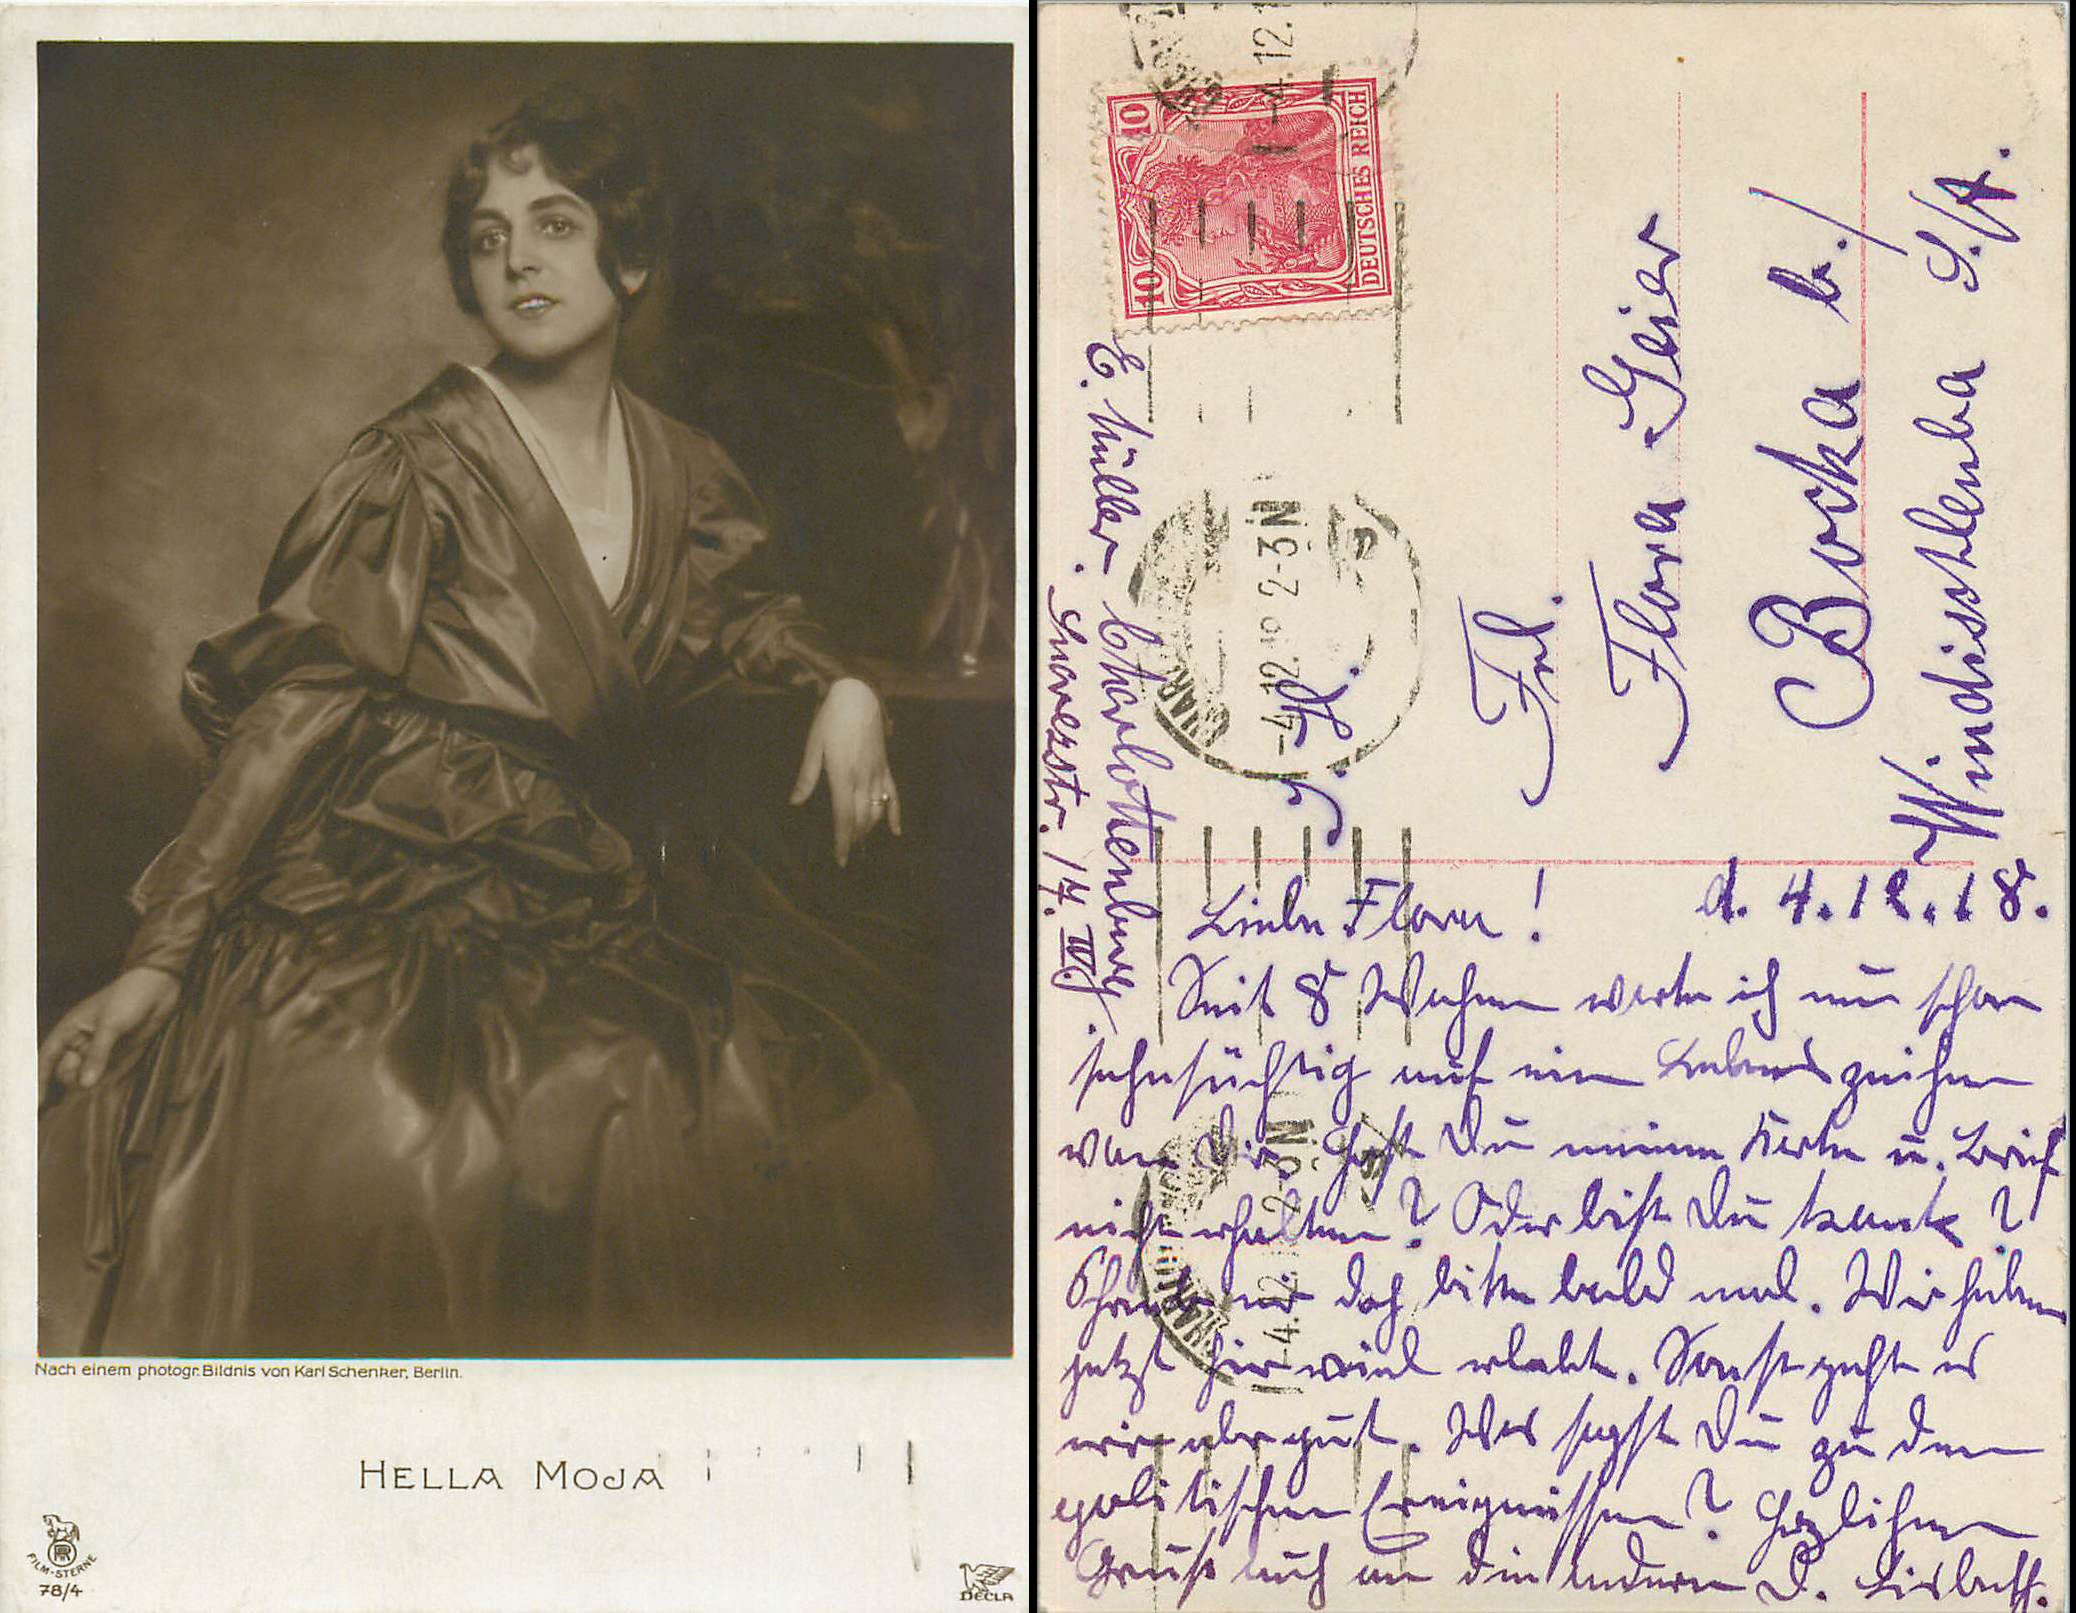 Nach einem photogr. Bildnis von Karl Schenker, Berlin.
HELLA MOJA
FILM-STERNE
78/4
DECLA
10 10
DEUTSCHES REICH
-4.12.18 2-3N
E. Müller. Charlottenburg
Suarezstr. 14. IV
Frl.
Flora Geier
Bocka b./
Windischleuba S./A.
d. 4.12.18.
Liebe Flora!
Seit 8 Wochen warte ich nun schon
sehnsüchtig auf ein Lebenszeichen
von Dir. Hast Du meine Karte u. Brief
nicht erhalten? Oder bist Du krank?
Schreib mir doch bitte bald mal. Wir haben
jetzt hier viel erlebt. Sonst geht es
mir aber gut. Was sagst Du zu den
politischen Ereignissen? Herzlichen
Gruß auch an die anderen D.